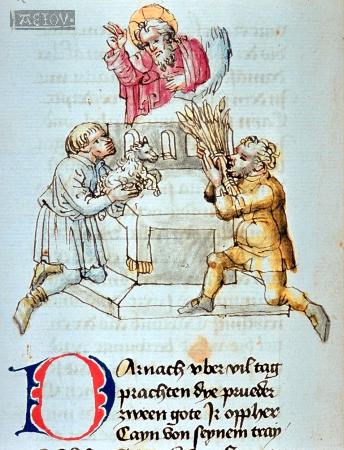 AEIOV
DArnach vber vil tag
prachten dye prueder
zween gote Ir oppher
Cayn von seynem tray